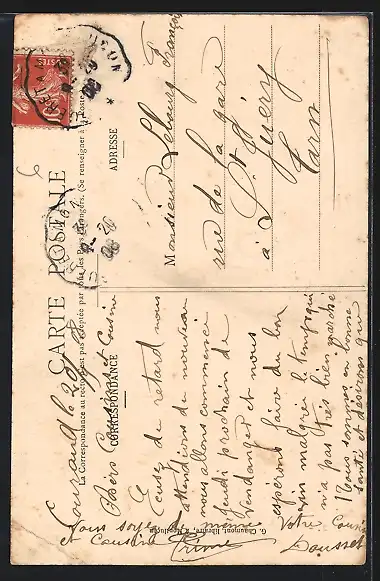 CARTE POSTALE
La Correspondance au recto n'est pas acceptée par tous les Pays étrangers. (Se renseigner à la Poste)
CORRESPONDANCE
ADRESSE
Monsieur François
rue de la gare
à St Juéry
Tarn
Chers Cousins et Cousine
de retard nous
attendions de nouveau
nous allons commencer
jeudi prochain de
vendanger et nous
espérons faire du bon
vin malgré le temps qui
n'a pas très bien marché
Nous sommes en bonne
santé et désirons que
Vous soyez de même
et Cousine
Votre Cousin
G. Chaumont, libraire,